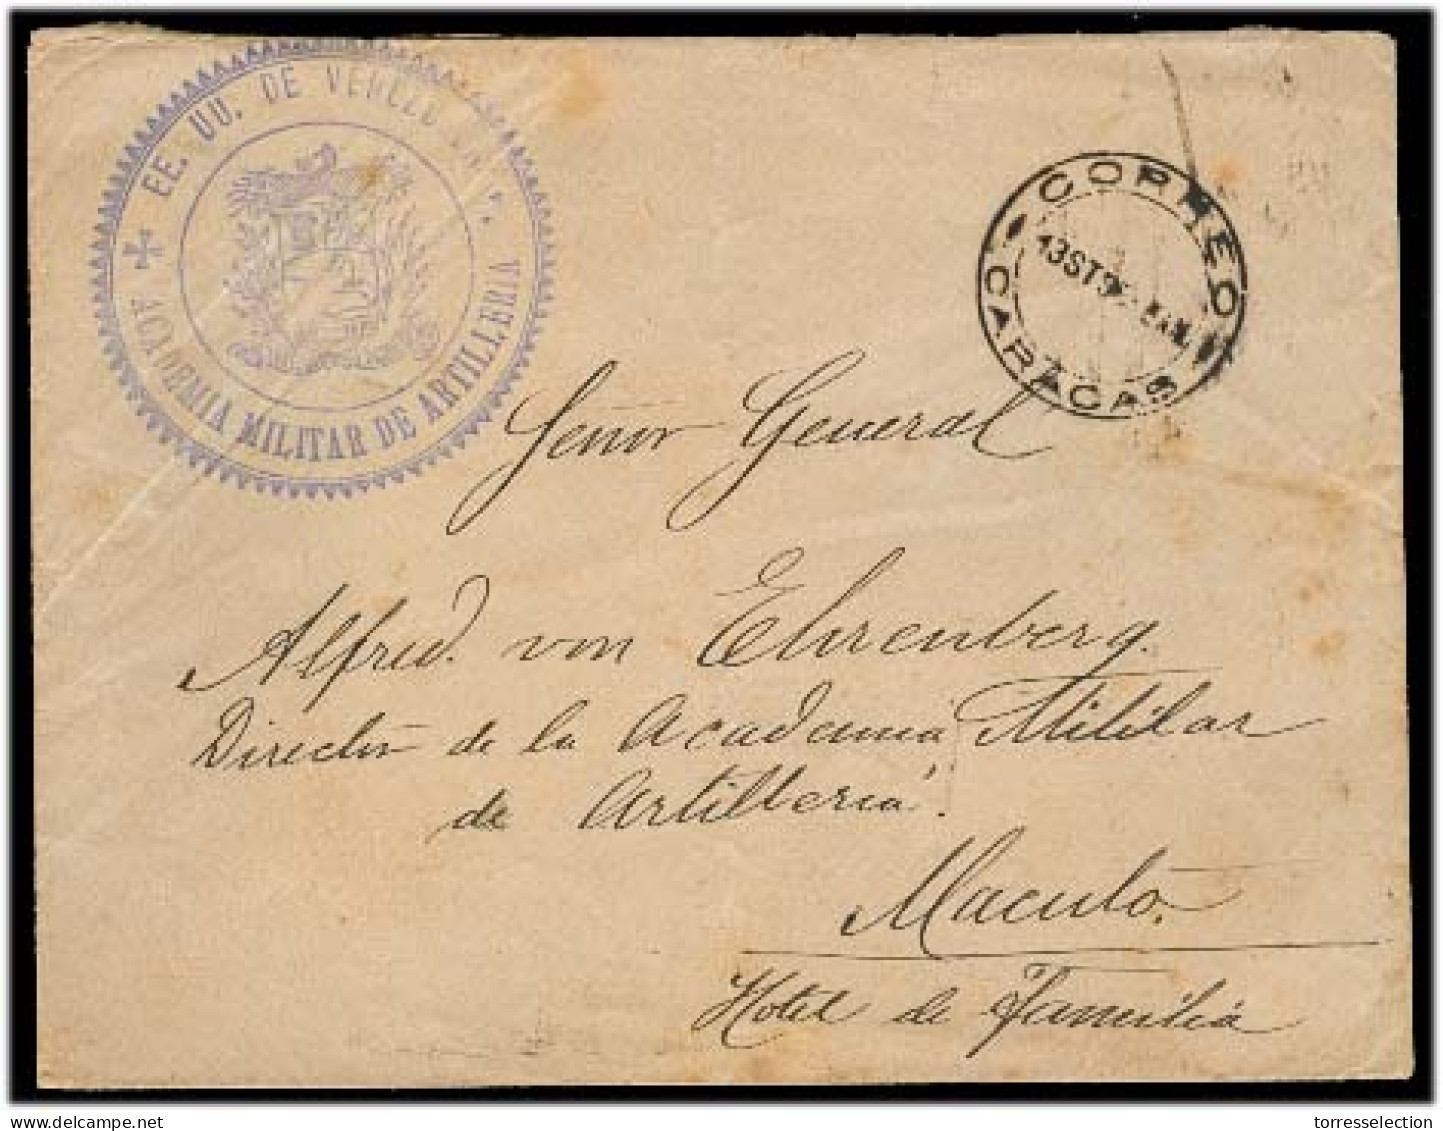 EE. UU. DE
ACADEMIA MILITAR DE ARTILLERIA
CORREO
CARACAS
Señor General
Alfred. von Ehrenberg.
Director de la Academia Militar
de Artilleria.
Macuto.
Hotel de Familia
delcampe.net
torresselection